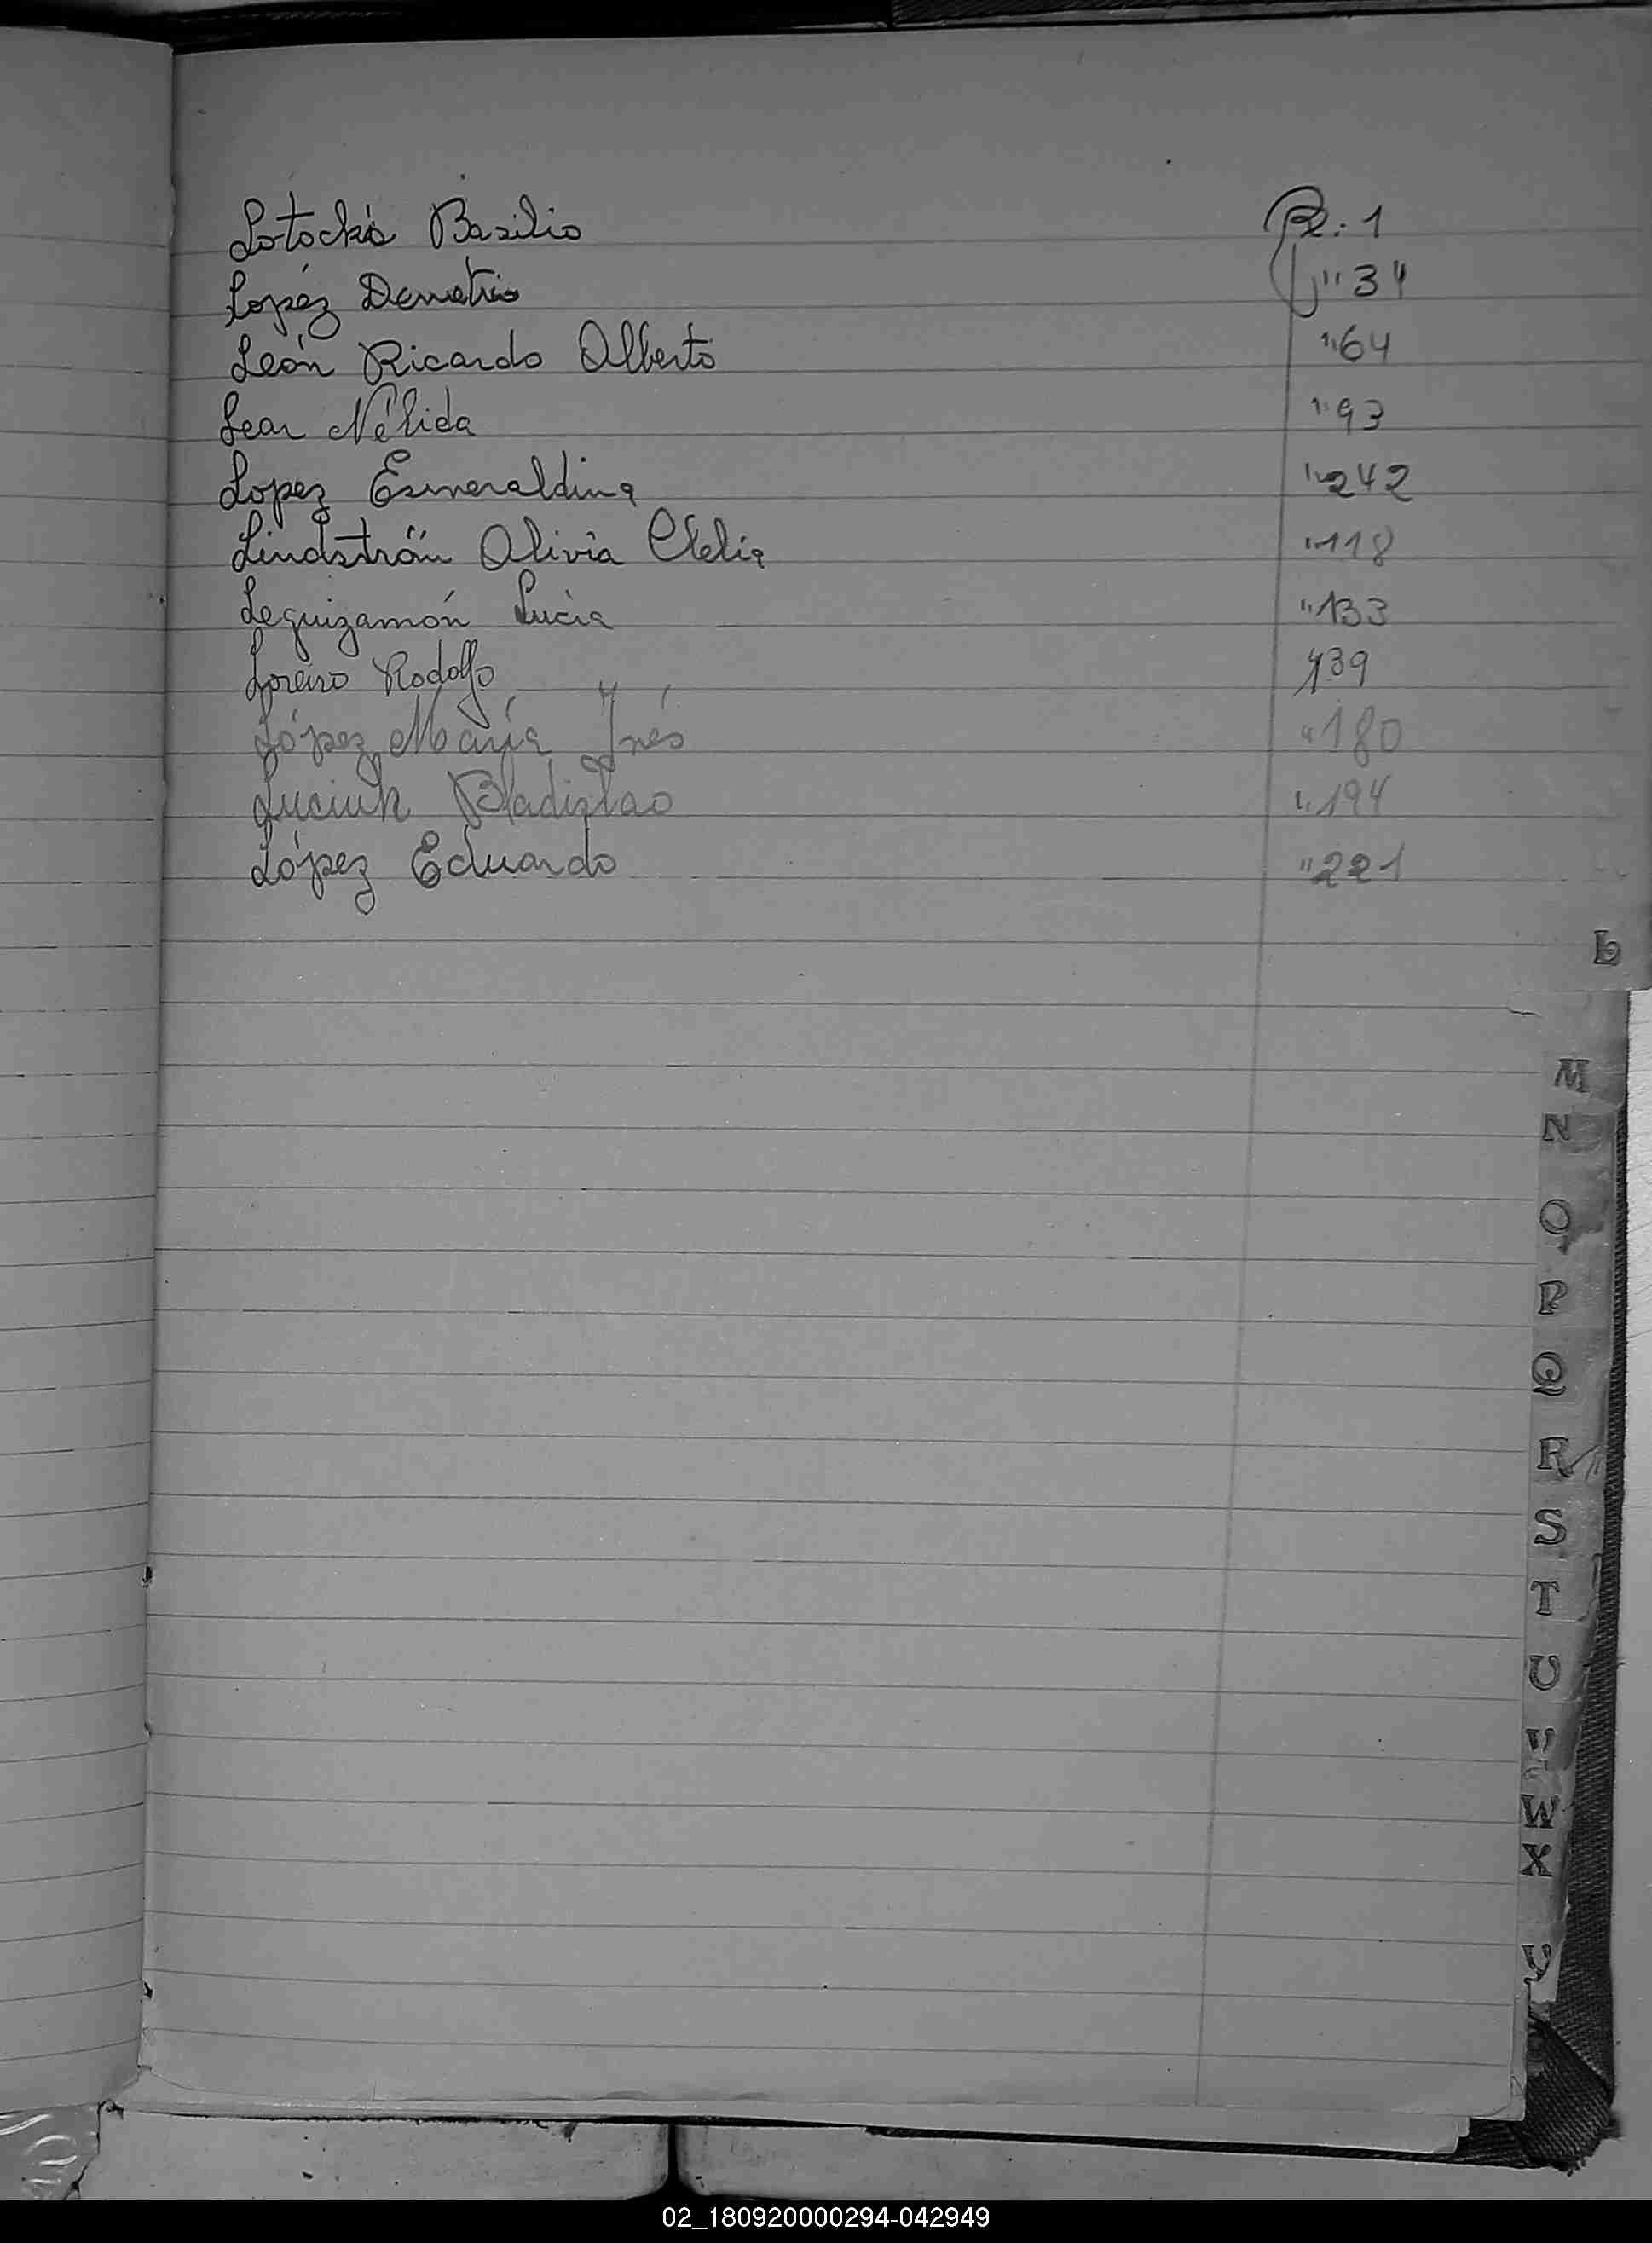 Lotocki Basilio
Lopéz Demetrio " 34
León Ricardo Alberto " 64
Lear Nélida " 93
Lopez Esmeraldina " 242
Lindström Olivia Clelia " 118
Leguizamón Lucía " 133
Loreiro Rodolfo 139
López María Inés " 180
Luciuk Bladislao " 194
López Eduardo " 221
L
M
N
O
P
Q
R
S
T
U
W
X
02_180920000294-042949